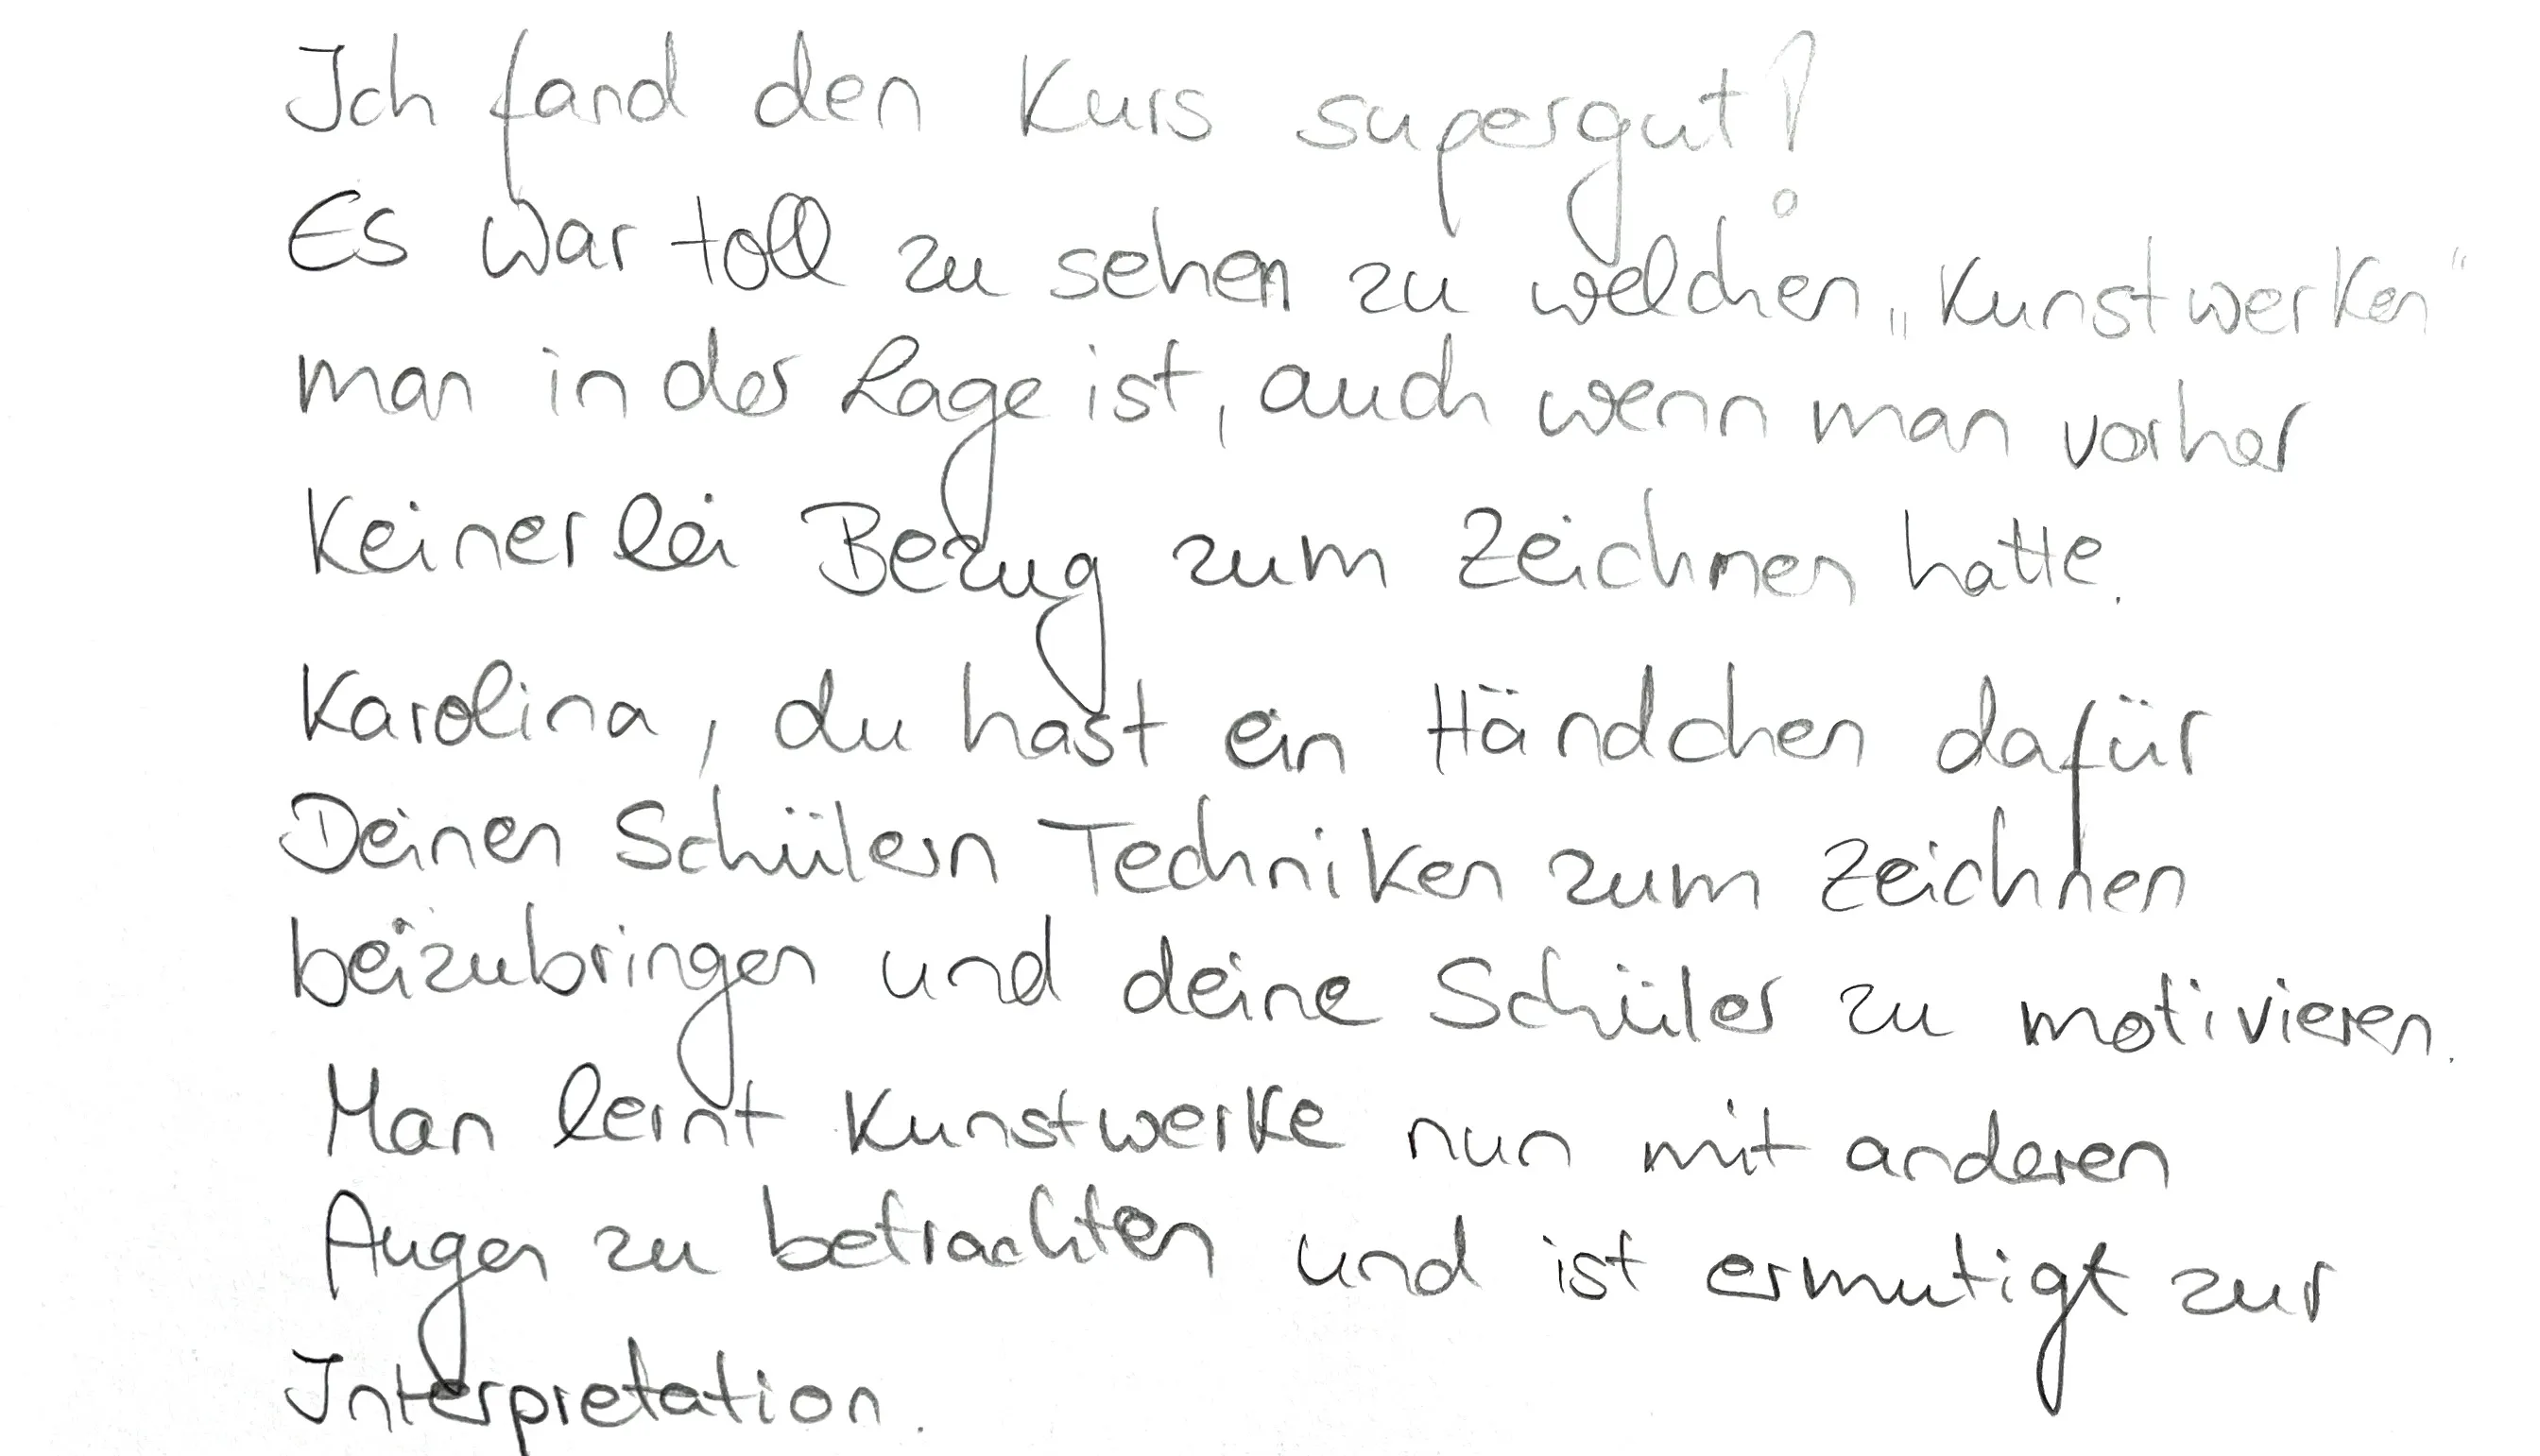 Ich fand den Kurs supergut!
Es war toll zu sehen zu welchen „Kunstwerken“
man in der Lage ist, auch wenn man vorher
keinerlei Bezug zum Zeichnen hatte.
Karolina, du hast ein Händchen dafür
Deinen Schülern Techniken zum Zeichnen
beizubringen und deine Schüler zu motivieren.
Man lernt Kunstwerke nun mit anderen
Augen zu betrachten und ist ermutigt zur
Interpretation.